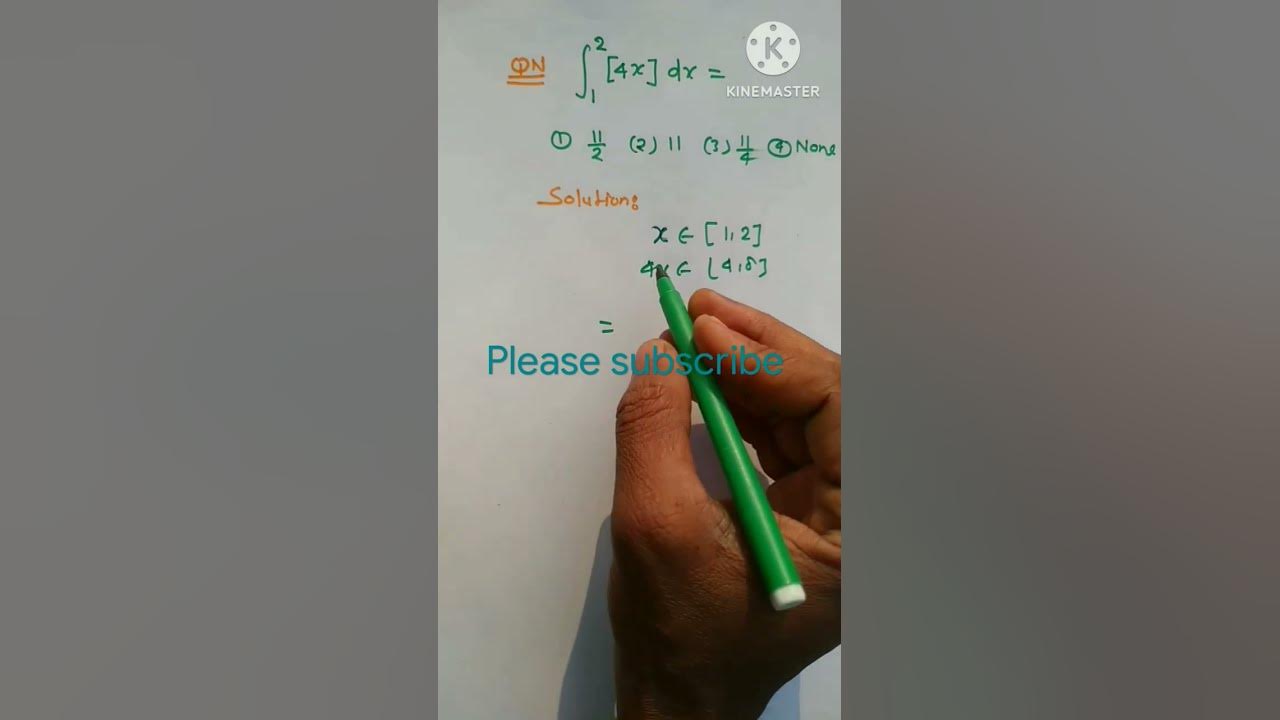 QN ∫₁² [4x] dx =
KINEMASTER
① 11/2 (2) 11 (3) 11/4 ④ None
Solution:
x ∈ [1,2]
4x ∈ [4,8]
=
Please subscribe